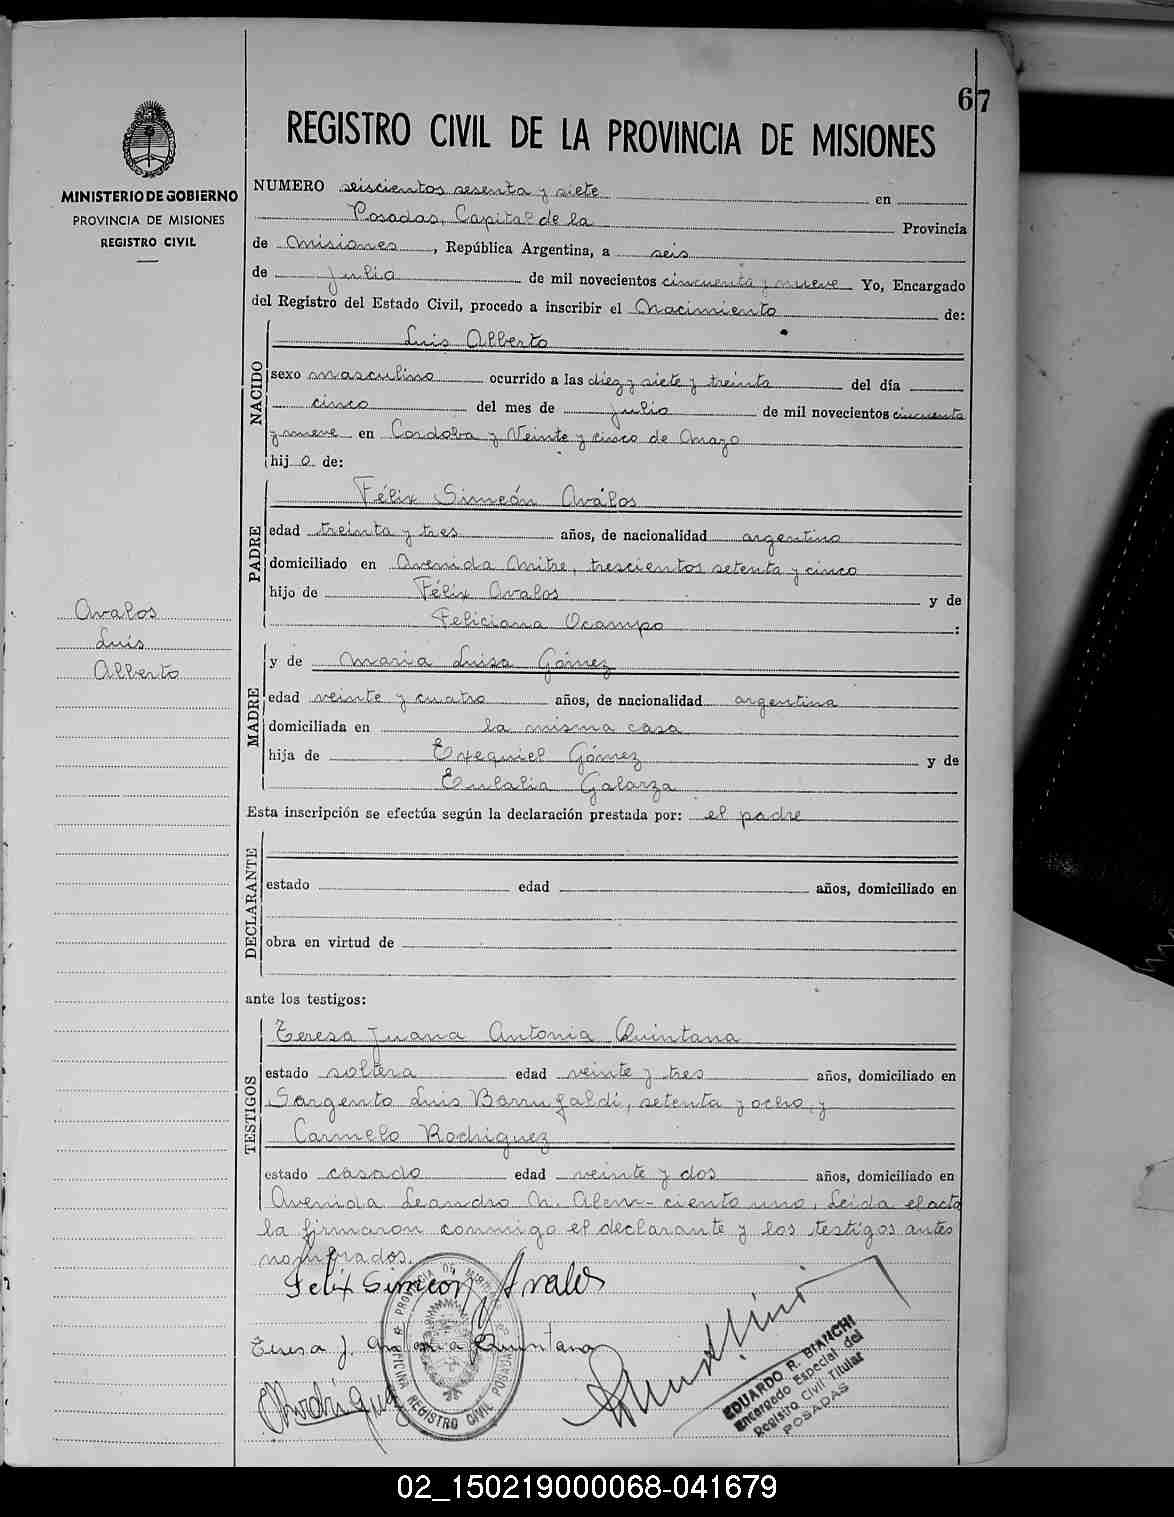 67
REGISTRO CIVIL DE LA PROVINCIA DE MISIONES
MINISTERIO DE GOBIERNO
PROVINCIA DE MISIONES
REGISTRO CIVIL
NUMERO seiscientos sesenta y siete en
Posadas, Capital de la Provincia
de Misiones, República Argentina, a seis
de Julio de mil novecientos cincuenta y nueve Yo, Encargado
del Registro del Estado Civil, procedo a inscribir el Nacimiento de:
Luis Alberto
NACIDO
sexo masculino ocurrido a las diez y siete y treinta del día
cinco del mes de julio de mil novecientos cincuenta
y nueve en Cordoba y Veinte y cinco de Mayo
hij o de:
Félix Simeón Avalos
PADRE
edad treinta y tres años, de nacionalidad argentino
domiciliado en Avenida Mitre, trescientos setenta y cinco
hijo de Félix Avalos y de
Feliciana Ocampo :
Avalos
Luis
Alberto
y de Maria Luisa Gómez
MADRE
edad veinte y cuatro años, de nacionalidad argentina
domiciliada en la misma casa
hija de Exequiel Gómez y de
Eulalia Galarza
Esta inscripción se efectúa según la declaración prestada por: el padre
DECLARANTE
estado edad años, domiciliado en
obra en virtud de
ante los testigos:
TESTIGOS
Teresa Juana Antonia Quintana
estado soltera edad veinte y tres años, domiciliado en
Sargento Luis Barrufaldi, setenta y ocho, y
Carmelo Rodriguez
estado casado edad veinte y dos años, domiciliado en
Avenida Leandro N. Alem - ciento uno, Leida el acta
la firmaron conmigo el declarante y los testigos antes
nombrados.
Felix Simeón Avalos
Teresa J. Antonia Quintana
CRodriguez
PROVINCIA DE MISIONES
OFICINA REGISTRO CIVIL POSADAS
EDUARDO R. BIANCHI
Encargado Especial del
Registro Civil Titular
POSADAS
02_150219000068-041679